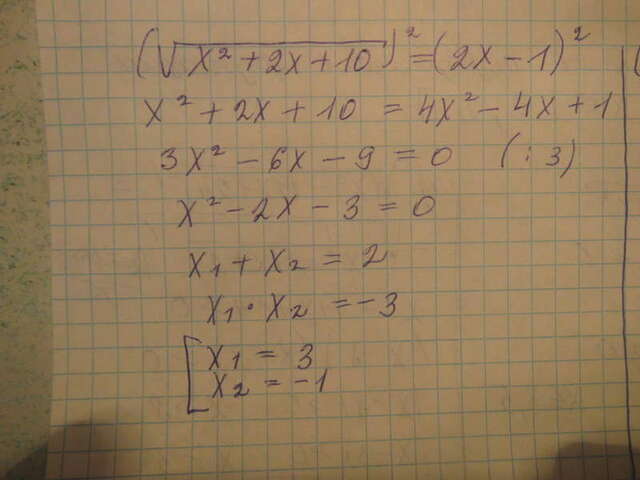 (√x² + 2x + 10)² = (2x - 1)²
x² + 2x + 10 = 4x² - 4x + 1
3x² - 6x - 9 = 0 (: 3)
x² - 2x - 3 = 0
x₁ + x₂ = 2
x₁ · x₂ = -3
[x₁ = 3
x₂ = -1